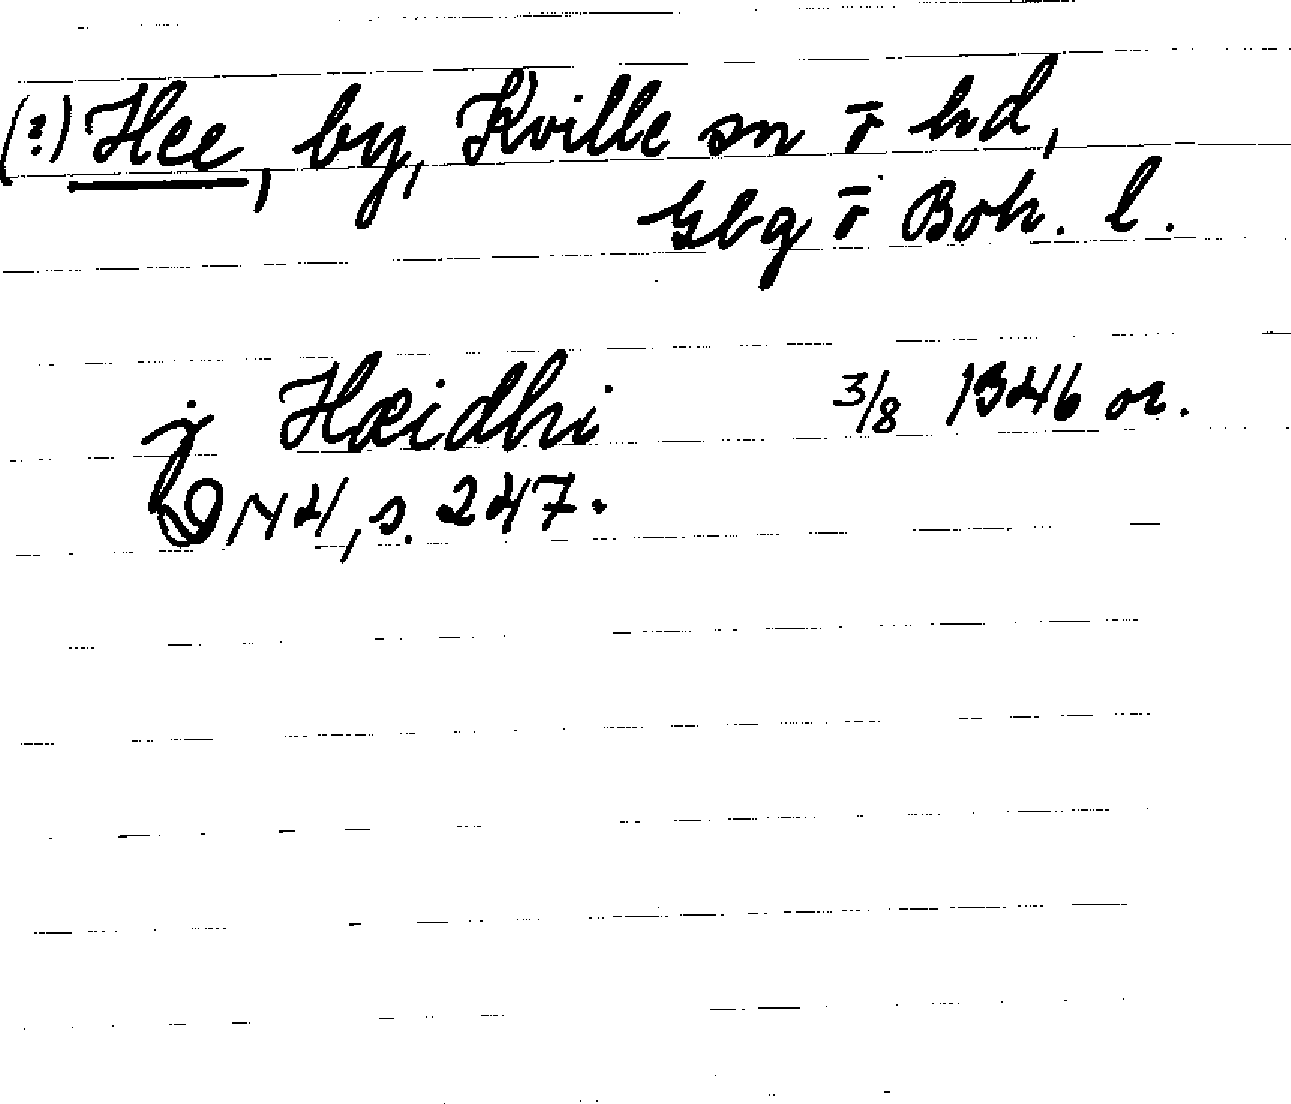 (?) Hee, by, Kville sn o hd,
Gbg o Boh. l.
j Hæidhi 3/8 1346 or.
DN 4, s. 247.